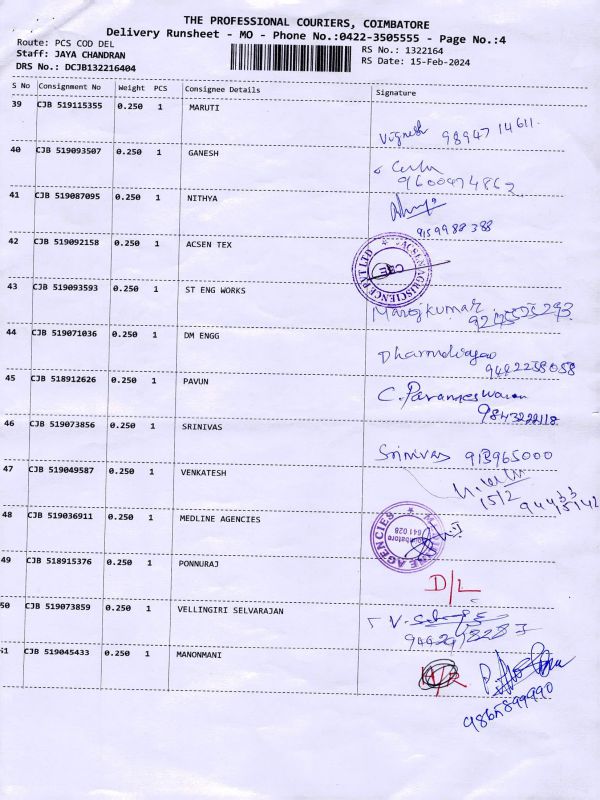 THE PROFESSIONAL COURIERS, COIMBATORE
Delivery Runsheet - MO - Phone No.:0422-3505555 - Page No.:4
Route: PCS COD DEL
RS No.: 1322164
Staff: JAYA CHANDRAN
RS Date: 15-Feb-2024
DRS No.: DCJB132216404
S No Consignment No Weight PCS Consignee Details Signature
39 CJB 519115355 0.250 1 MARUTI
Vignesh 98947 14611.
40 CJB 519093507 0.250 1 GANESH
9600474862
41 CJB 519087095 0.250 1 NITHYA
9159988388
42 CJB 519092158 0.250 1 ACSEN TEX
ACSEN AGRISCIENCE PVT LTD
CBE
43 CJB 519093593 0.250 1 ST ENG WORKS
Manojkumar
44 CJB 519071036 0.250 1 DM ENGG
9442258058
45 CJB 518912626 0.250 1 PAVUN
C. Parameswaran
9843222118
46 CJB 519073856 0.250 1 SRINIVAS
Srinivas 913965000
47 CJB 519049587 0.250 1 VENKATESH
15/2
48 CJB 519036911 0.250 1 MEDLINE AGENCIES
AGENCIES
Coimbatore
641 028
49 CJB 518915376 0.250 1 PONNURAJ
D/L
50 CJB 519073859 0.250 1 VELLINGIRI SELVARAJAN
51 CJB 519045433 0.250 1 MANONMANI
9865899990